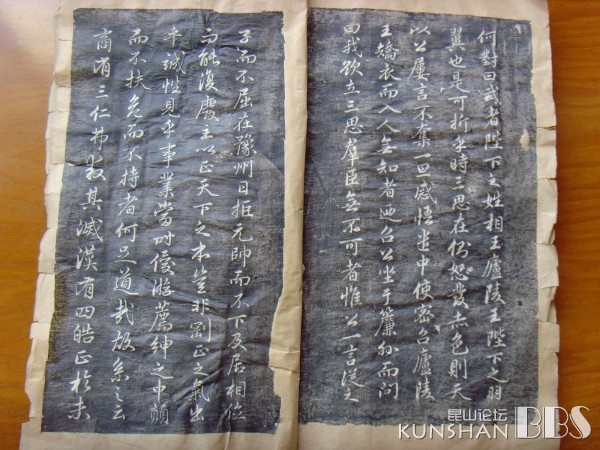 何對曰武者陛下之姓相王廬陵王陛下之羽
翼也是可折乎時三思在側怒發赤色則天
以公屢言不奪一旦感悟遣中使密召廬陵
王矯衣而入人無知者廼召公坐于簾外而問
曰我欲立三思羣臣無不可者惟公一言從之
子而不屈在豫州日拒元帥而不下及居相位
而能復廢主以正天下之本豈非剛正之氣出
乎誠性見乎事業當時優游薦紳之中顛
而不扶危而不持者何足道哉故系之云
商有三仁弗救其滅漢有四皓正於未
昆山论坛
KUNSHAN BBS